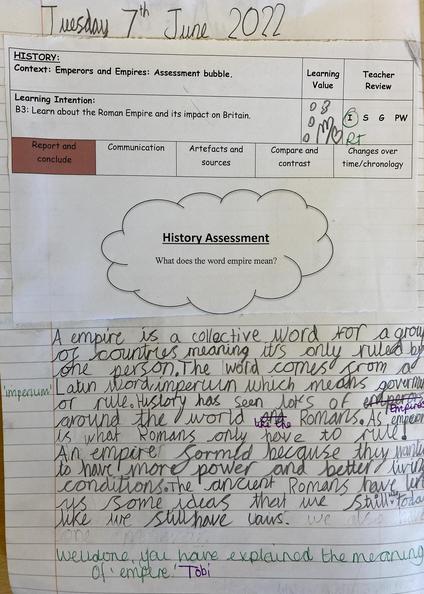 Tuesday 7th June 2022
HISTORY:
Context: Emperors and Empires: Assessment bubble.
Learning Value
Teacher Review
Learning Intention:
B3: Learn about the Roman Empire and its impact on Britain.
I S G PW
RT
Report and conclude
Communication
Artefacts and sources
Compare and contrast
Changes over time/chronology
History Assessment
What does the word empire mean?
A empire is a collective word for a grou
of countries meaning it's only ruled by
one person. The word comes from a
'imperium' Latin word imperiun which means governm
or rule. History has seen lots of empires
around the world like the Romans. As
is what Romans only have to rule!
An empire formed because they want
to have more power and better living
conditions. The ancient Romans have
us some ideas that we still today
like we still have laws.
Welldone, you have explained the meaning
of 'empire.' Tobi